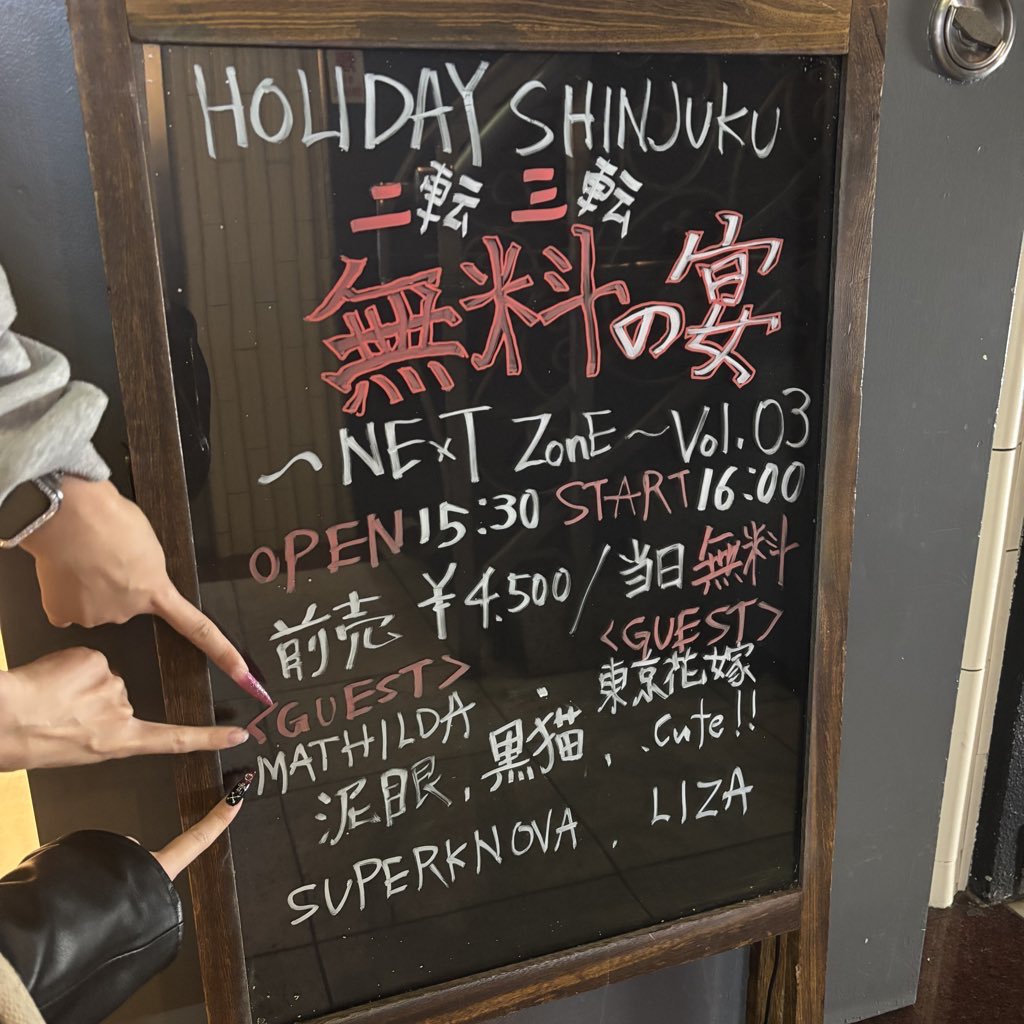 HOLIDAY SHINJUKU
二転 三転
無料の宴
～NExT ZonE～Vol.03
OPEN 15:30 START 16:00
前売 ¥4.500/当日無料
<GUEST> <GUEST>
MATHILDA . 東京花嫁
泥眼, 黒猫, .Cute!!
SUPERKNOVA . LIZA